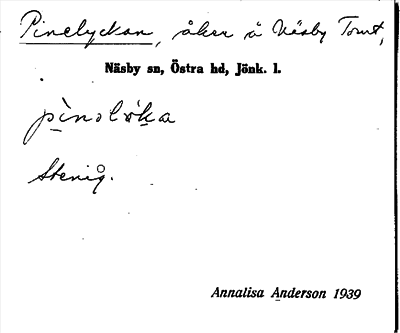 Pinelyckan, åker å Näsby Tomt,
Näsby sn, Östra hd, Jönk. l.
Stenig.
Annalisa Anderson 1939